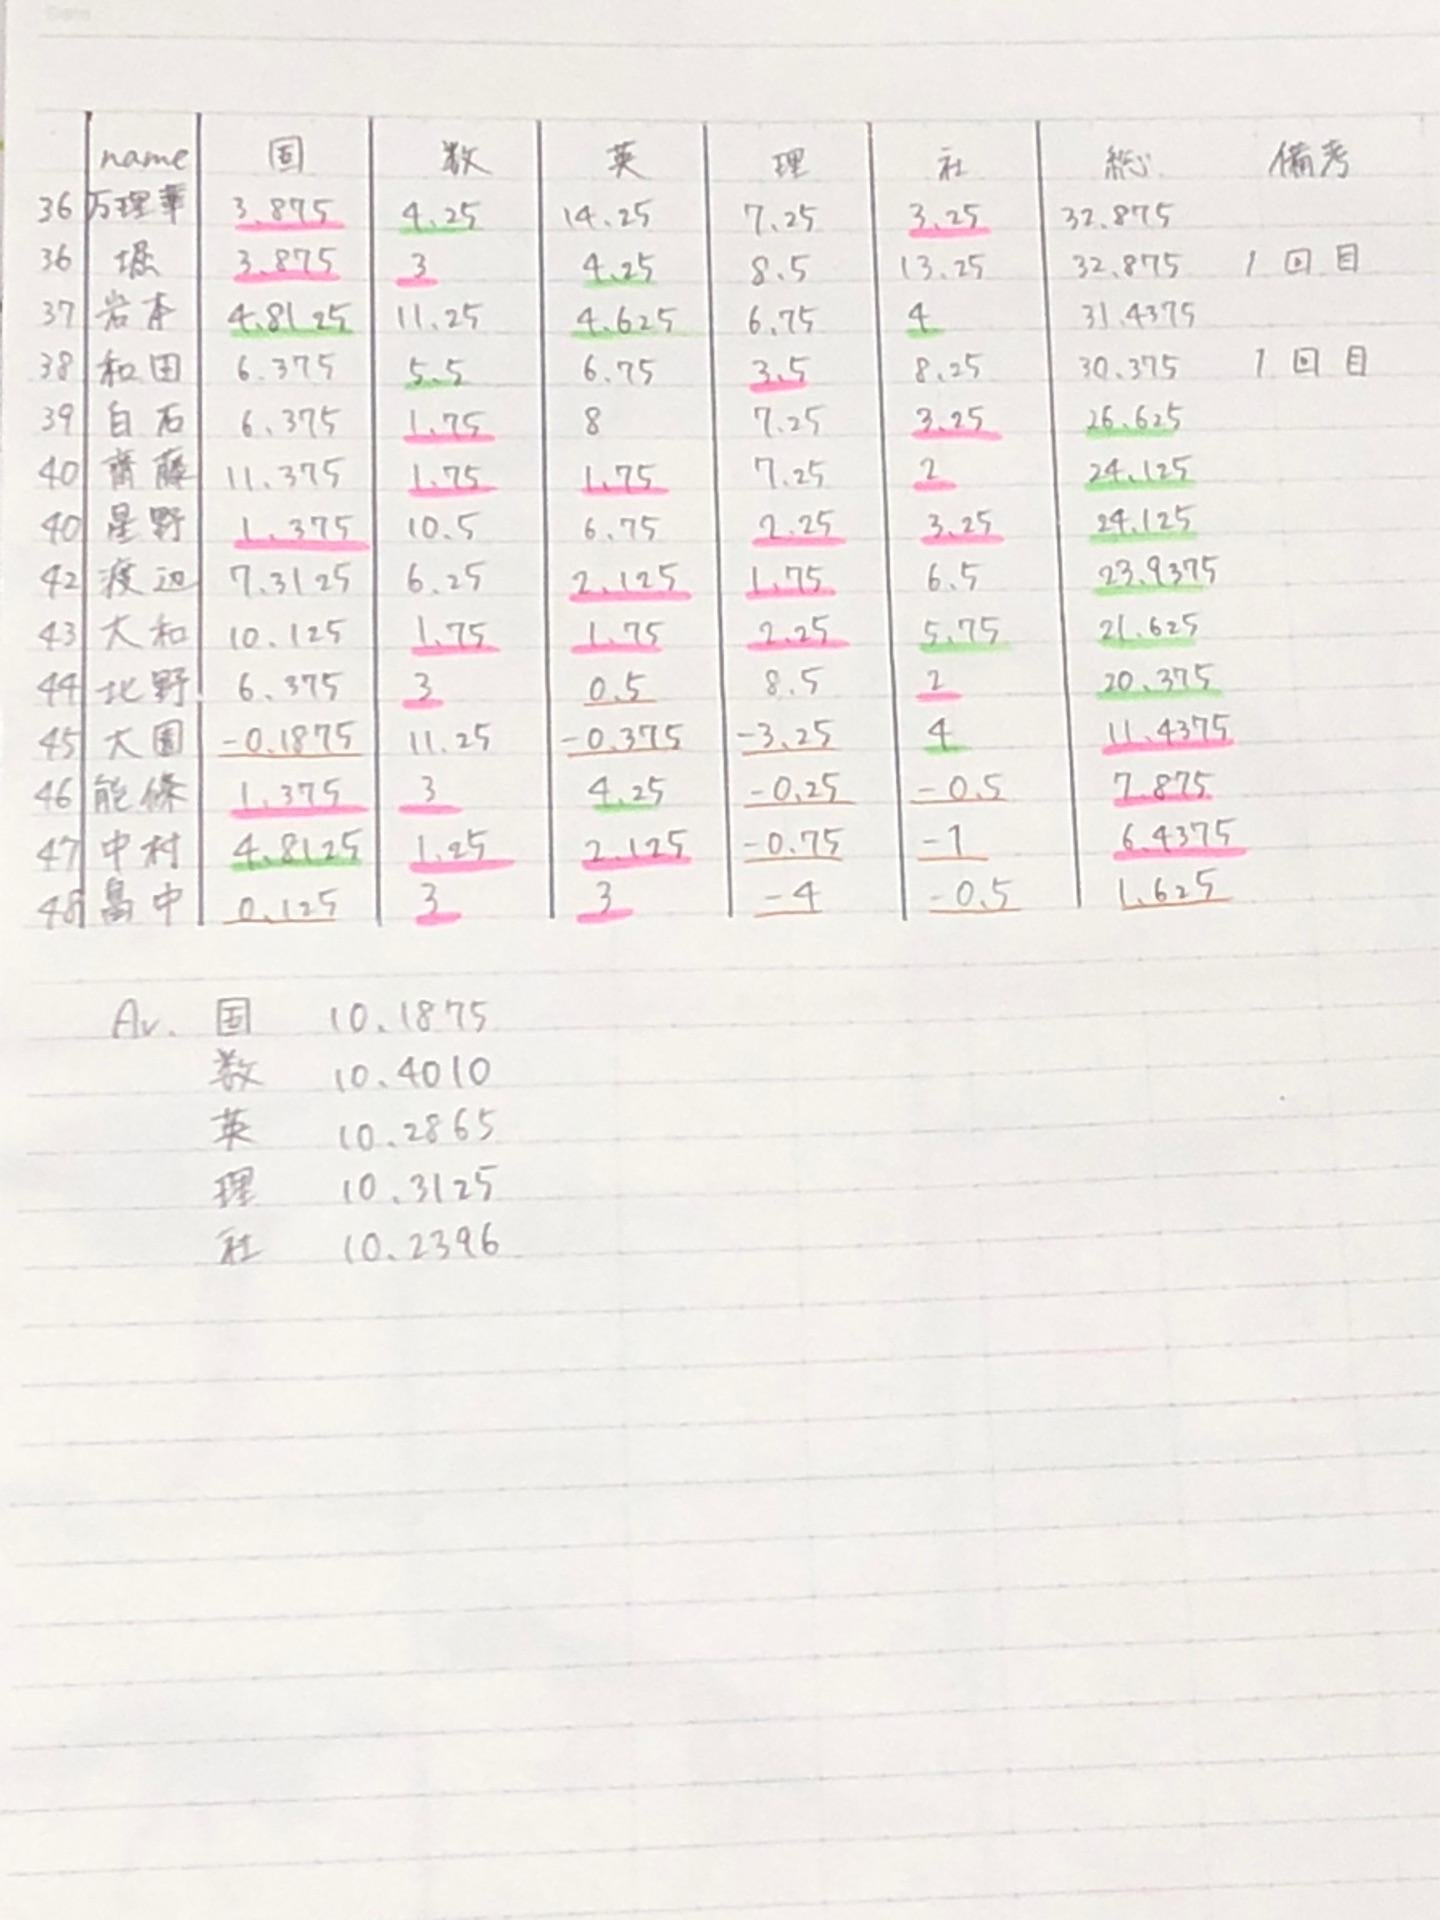 name 国 数 英 理 社 総 備考
36 万理華 3.875 4.25 14.25 7.25 3.25 32.875
36 堀 3.875 3 4.25 8.5 13.25 32.875 1回目
37 岩本 4.8125 11.25 4.625 6.75 4 31.4375
38 和田 6.375 5.5 6.75 3.5 8.25 30.375 1回目
39 白石 6.375 1.75 8 7.25 3.25 26.625
40 齋藤 11.375 1.75 1.75 7.25 2 24.125
40 星野 1.375 10.5 6.75 2.25 3.25 24.125
42 渡辺 7.3125 6.25 2.125 1.75 6.5 23.9375
43 大和 10.125 1.75 1.75 2.25 5.75 21.625
44 北野 6.375 3 0.5 8.5 2 20.375
45 大園 -0.1875 11.25 -0.375 -3.25 4 11.4375
46 能條 1.375 3 4.25 -0.25 -0.5 7.875
47 中村 4.8125 1.25 2.125 -0.75 -1 6.4375
48 畠中 0.125 3 3 -4 -0.5 1.625
Av. 国 10.1875
数 10.4010
英 10.2865
理 10.3125
社 10.2396